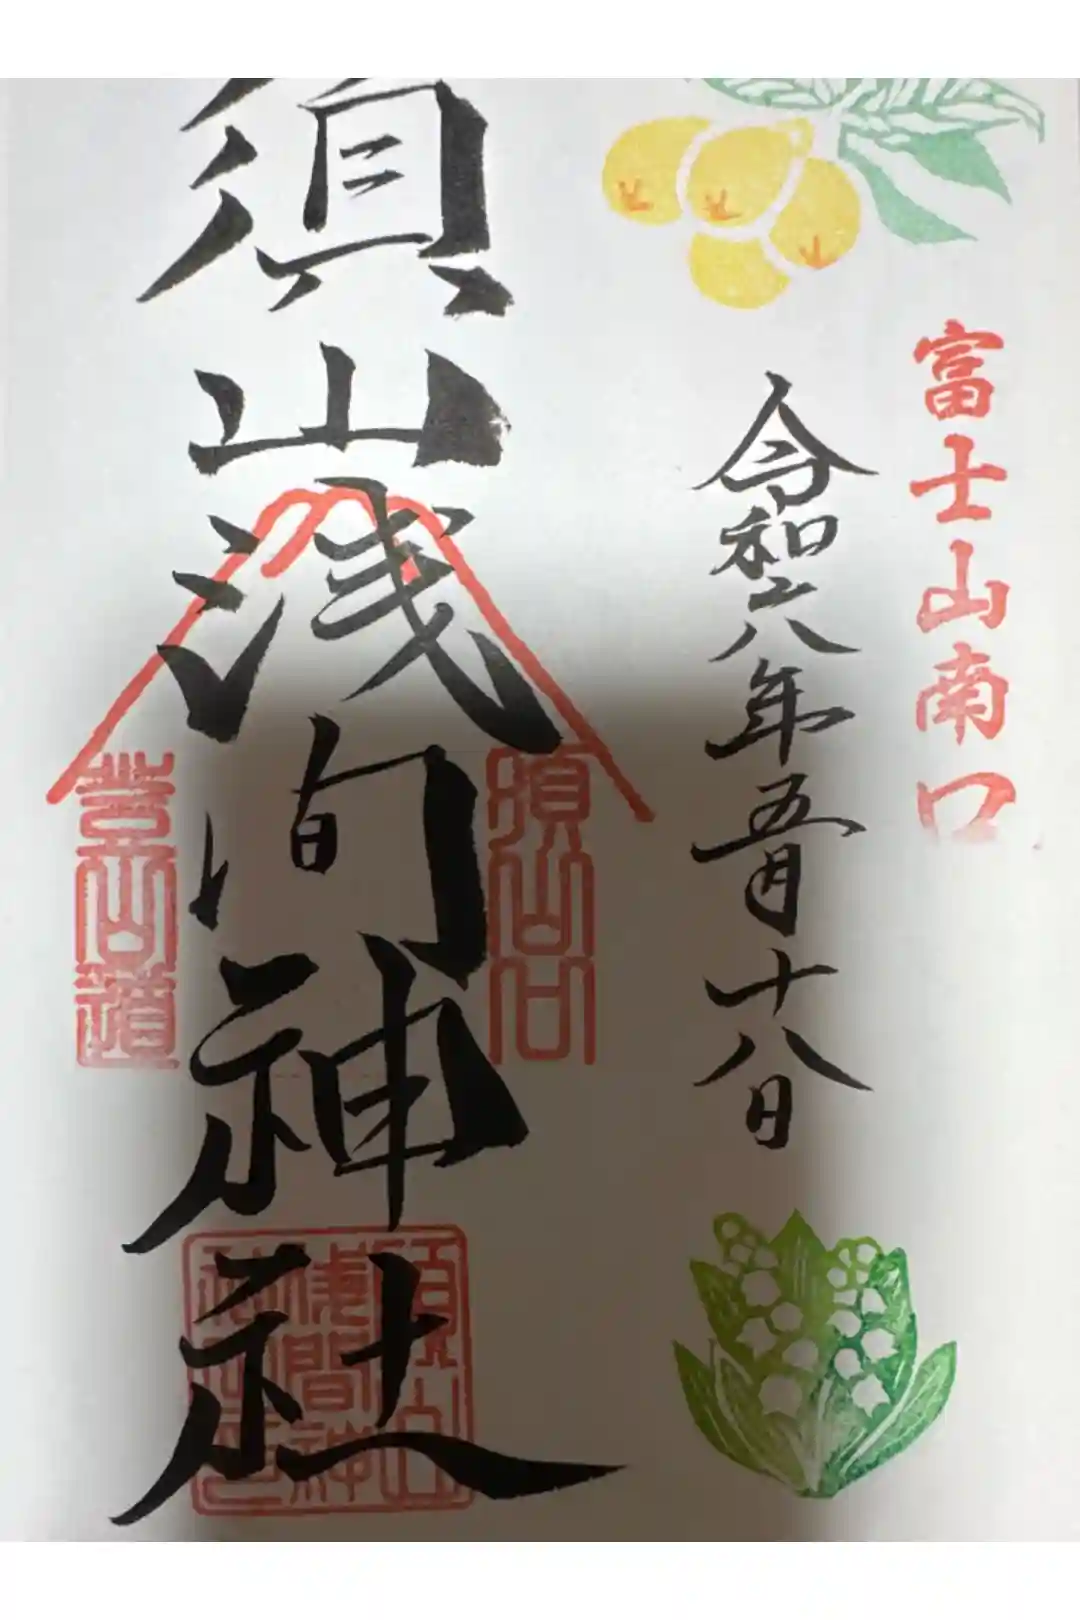 富士山南口
令和六年五月十八日
須山浅間神社
須山口
登山道
須山浅間神社